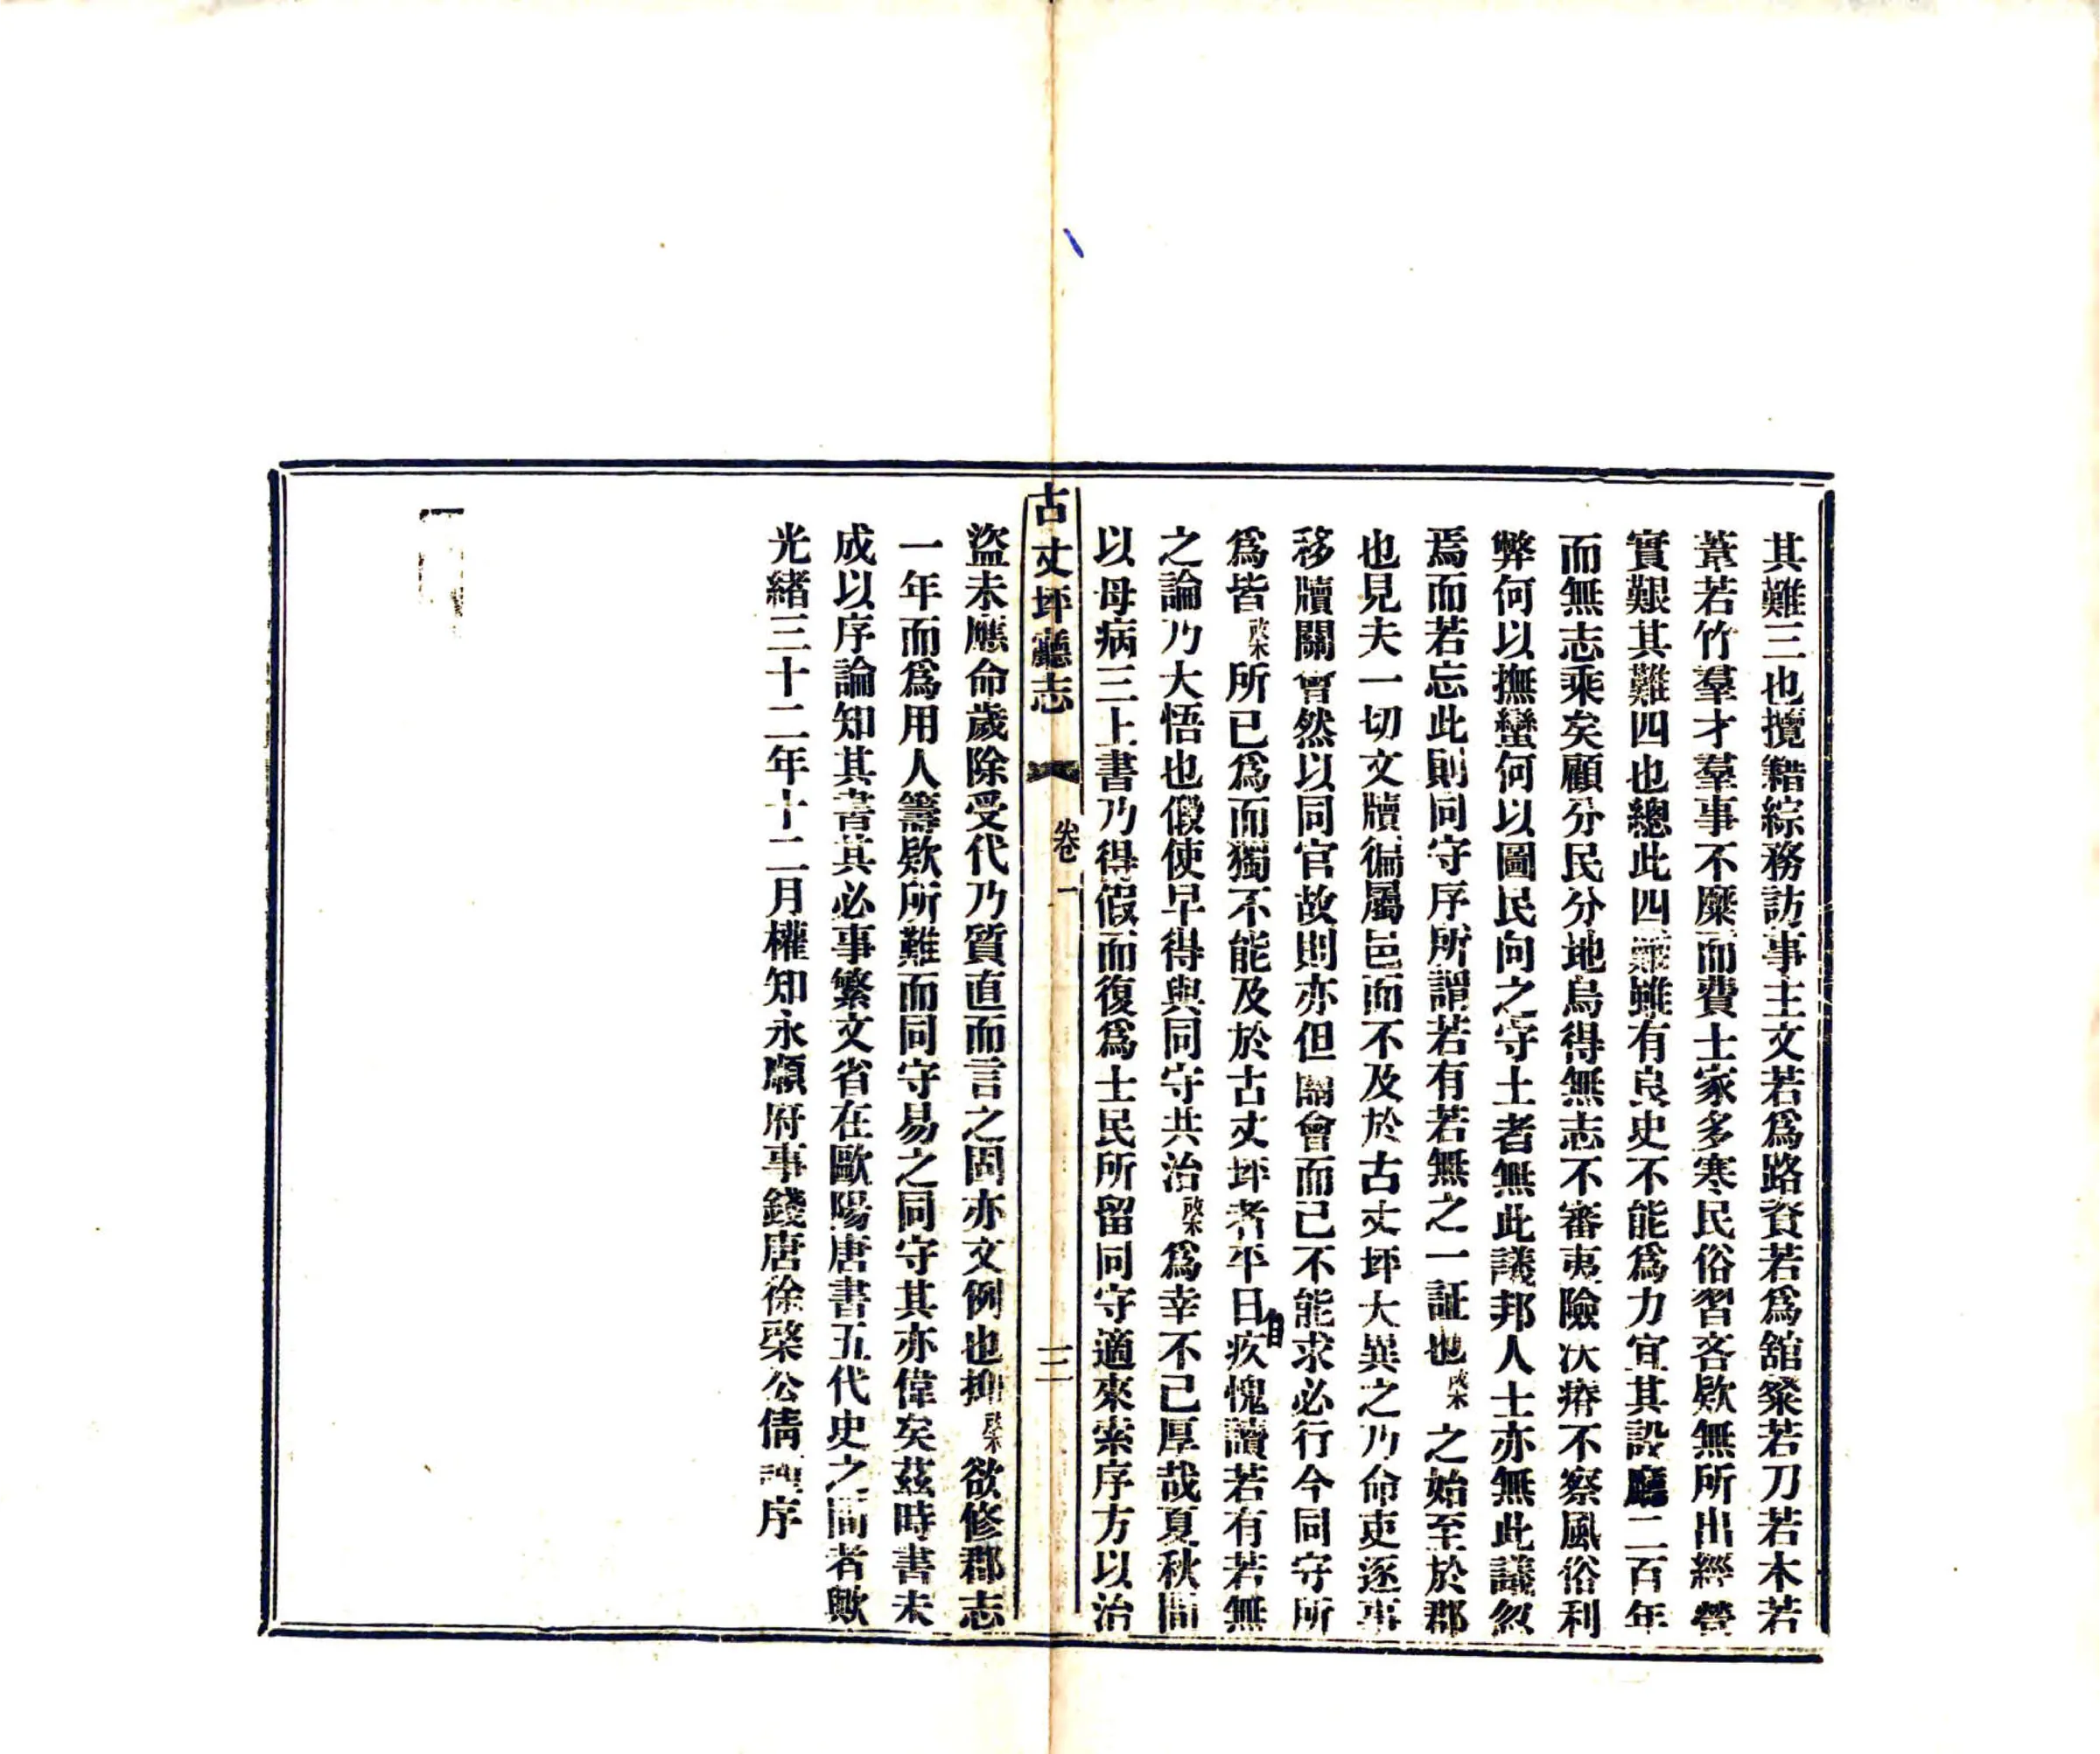 其難三也攬緒綜務訪事主文若爲路資若爲舘粲若刀若木若
葦若竹羣才羣事不糜而費士家多寒民俗習吝欵無所出經營
實艱其難四也總此四難雖有良史不能爲力宜其設廳二百年
而無志乘矣顧分民分地烏得無志不審夷險汏瘠不察風俗利
弊何以撫蠻何以圖民向之守土者無此議邦人士亦無此議忽
焉而若忘此則同守序所謂若有若無之一証也棨之始至於郡
也見夫一切文牘徧屬邑而不及於古丈坪大異之乃命吏逐事
移牘關會然以同官故則亦但關會而已不能求必行今同守所
爲皆棨所已爲而獨不能及於古丈坪者平日自疚愧讀若有若無
之論乃大悟也假使早得與同守共治棨爲幸不已厚哉夏秋間
以母病三上書乃得假而復爲士民所留同守適來索序方以治
古丈坪廳志 卷一 三
盜未應命歲除受代乃質直而言之固亦文例也抑棨欲修郡志
一年而爲用人籌欵所難而同守易之同守其亦偉矣茲時書未
成以序論知其書其必事繁文省在歐陽唐書五代史之間者歟
光緒三十二年十二月權知永順府事錢唐徐棨公倩謹序